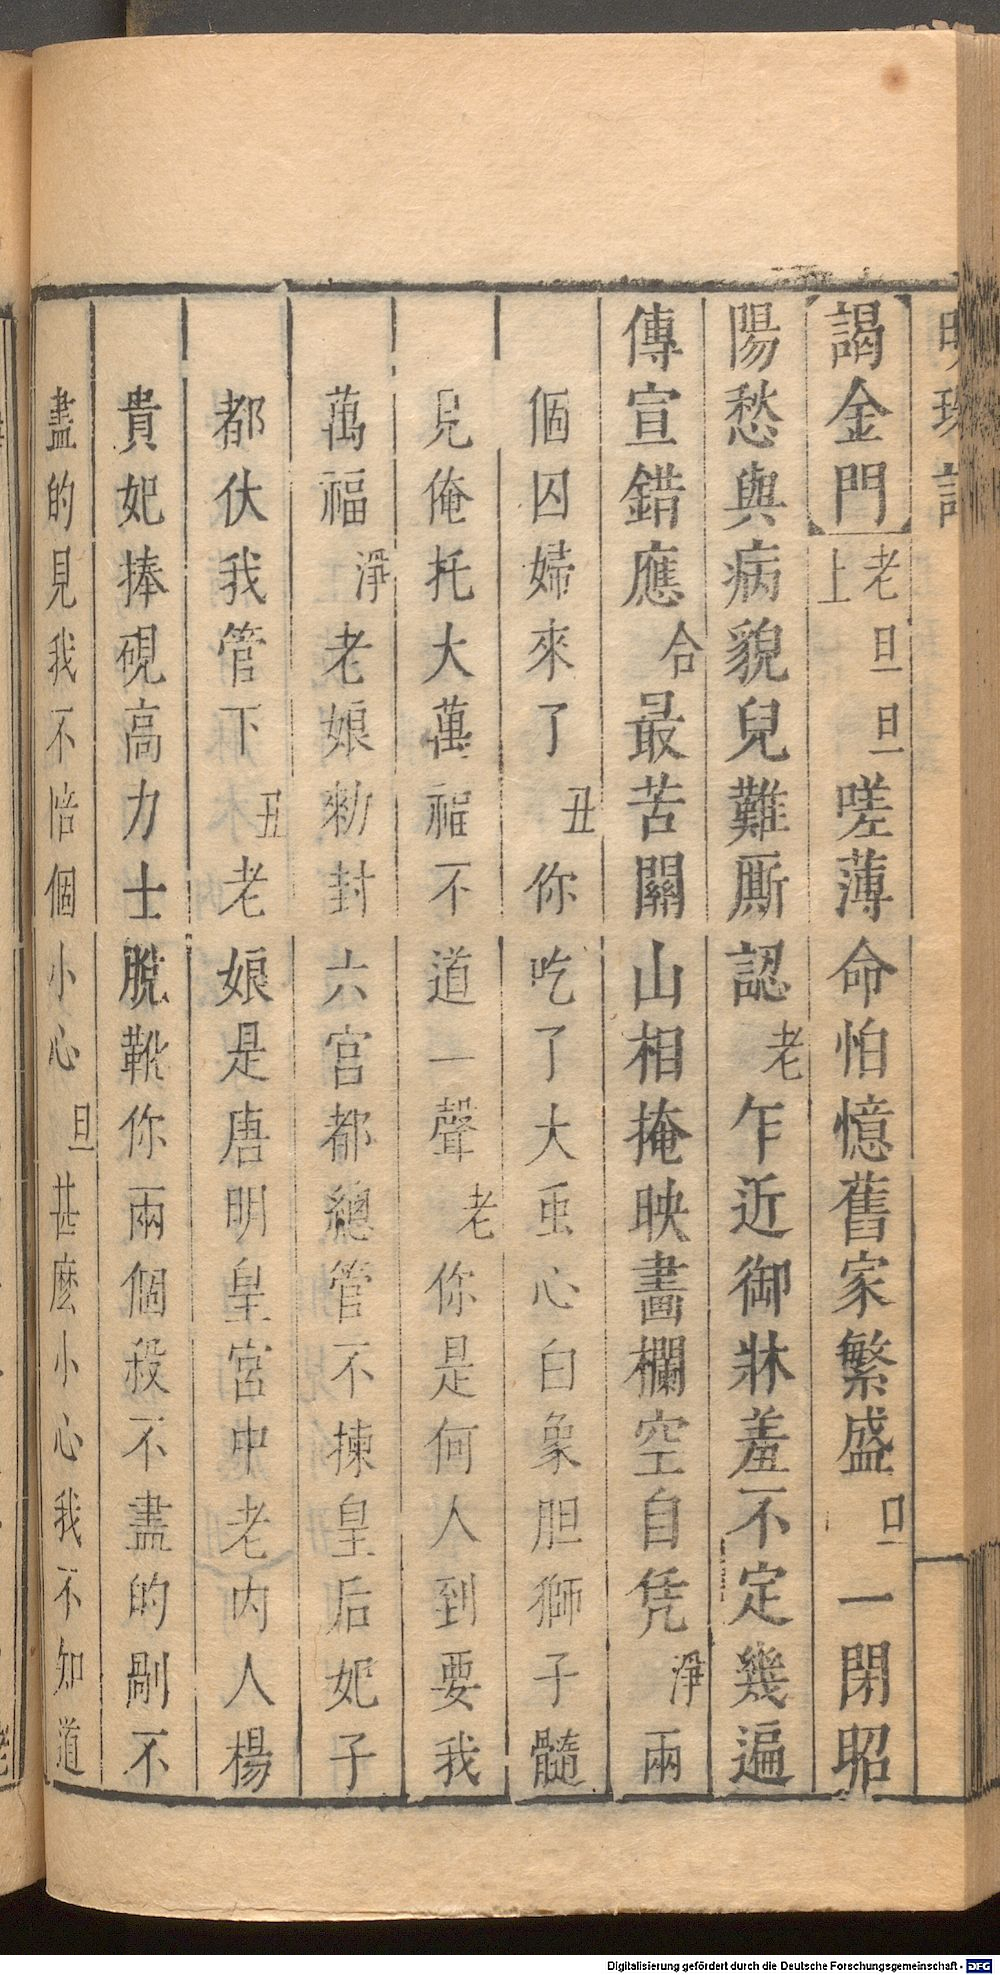 明珠記
謁金門 老旦旦上 嗟薄命怕憶舊家繁盛 旦 一閉昭
陽愁與病貌兒難厮認 老 乍近御牀羞不定幾遍
傳宣錯應 合 最苦關山相掩映畵欄空自凭 淨 兩
個囚婦來了 丑 你吃了大虫心白象胆獅子髓
見俺托大萬福不道一聲 老 你是何人到要我
萬福 淨 老娘勑封六宮都總管不揀皇后妃子
都伏我管下 丑 老娘是唐明皇宮中老內人楊
貴妃捧硯高力士脫靴你兩個殺不盡的剮不
盡的見我不陪個小心 旦 甚麽小心我不知道
Digitalisierung gefördert durch die Deutsche Forschungsgemeinschaft - DFG